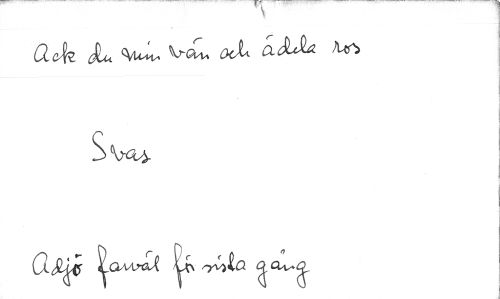 Ack du min vän och ädela ros
Svas
Adjö farväl för sista gång